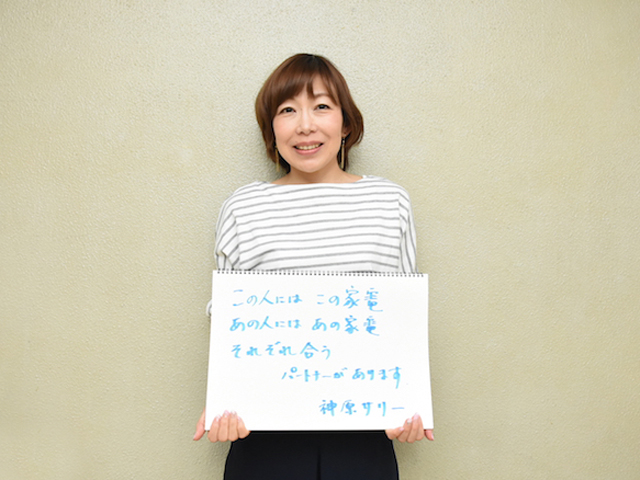 この人には この家電
あの人には あの家電
それぞれ合う
パートナーがあります
神原サリー